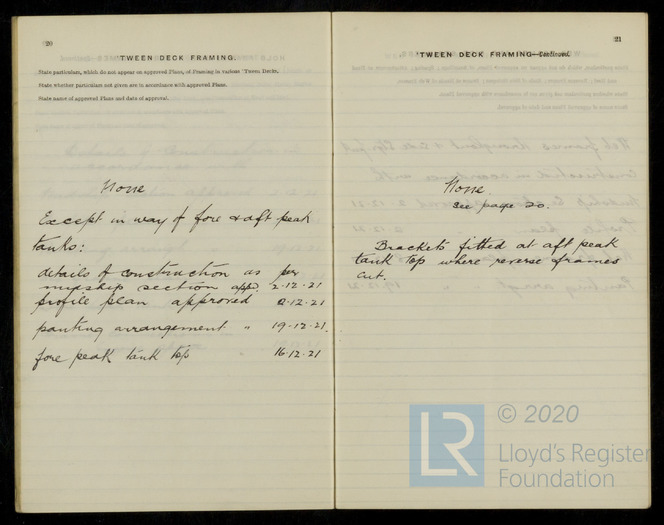 20
'TWEEN DECK FRAMING.
State particulars, which do not appear on approved Plans, of Framing in various 'Tween Decks.
State whether particulars not given are in accordance with approved Plans.
State name of approved Plans and date of approval.
None
Except in way of fore & aft peak
tanks:
details of construction as per
midship section appd. 2.12.21
profile plan approved 2.12.21
panting arrangement " 19.12.21
fore peak tank top 16.12.21
21
'TWEEN DECK FRAMING—Continued.
None.
See page 20.
Brackets fitted at aft peak
tank top where reverse frames
cut.
LR © 2020
Lloyd's Register
Foundation